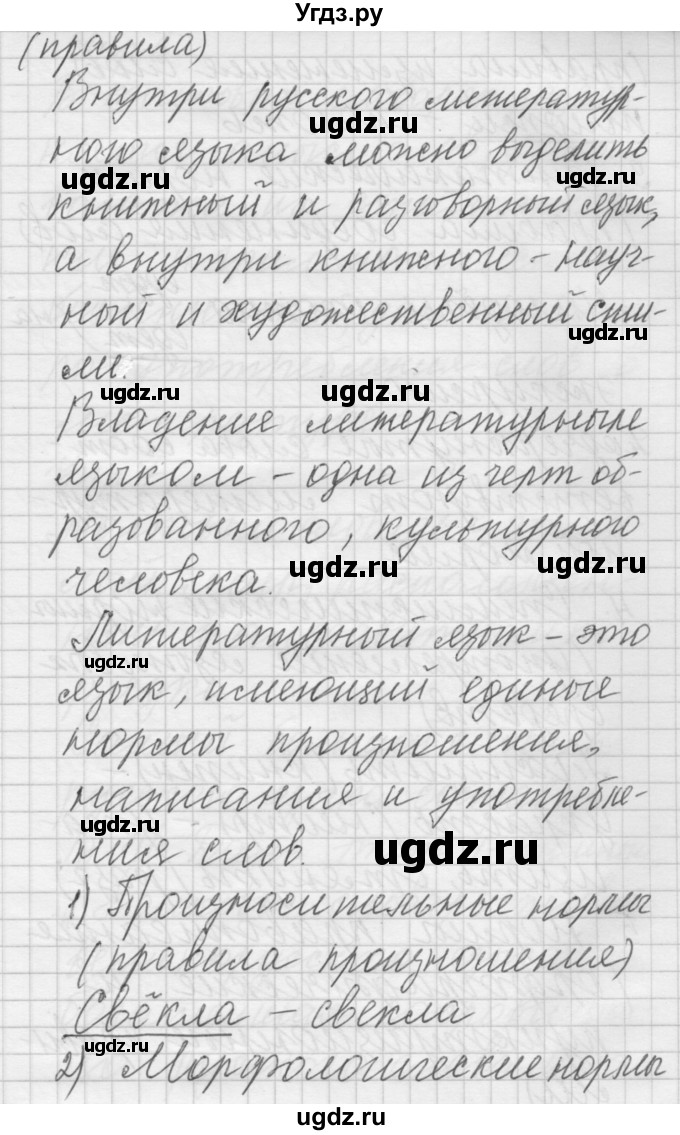 Угдз.ру
(правила)
Внутри русского литератур-
ugdz.ru
ного языка можно выделить
ugdz.ru ugdz.ru
книжный и разговорный язык,
а внутри книжного - науч-
ный и художественный сти-
ugdz.ru
ли.
ugdz.ru ugdz.ru
Владение литературным
языком - одна из черт об-
разованного, культурного
человека.
ugdz.ru ugdz.ru
Литературный язык - это
ugdz.ru
язык, имеющий единые
нормы произношения,
написания и употребле-
ugdz.ru
ния слов.
ugdz.ru
1) Произносительные нормы
(правила произношения)
Свёкла - свекла
ugdz.ru
2) Морфологические нормы
ugdz.ru